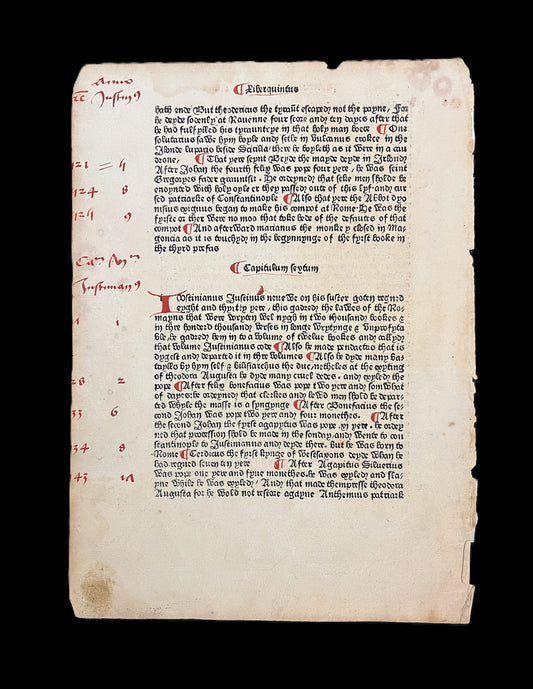 ¶ Liber quintus
Anno
Justin9
hath ende But theodericus the tyraunt escaped not the payne, For
he deyde sodenly at Rauenne four score and ten dayes after that
he had fulfylled his tyrauntrye in that holy man boece ¶ One
solutarius sawe hym boyle and sethe in vulcanus crokke in the
Ilonde lyparys beside Scicilia there he boyleth as it were in a cau
drone, ¶ That yere seynt Bryde the mayde deyde in Irlond
121 4
After Johan the fourth felix was pope four yere, he was seint
Gregoryes fader graunsire. He ordeyned that seke men shold be
124 8
enoynted with holy oyle er they passed out of this lyf and cur
sed patriark of Constantinople ¶ Also that yere the Abbot dyo
nisius exiguus began to make his compot at Rome He was the
129 9
fyrste or ther were no moo that toke hede of the defautes of that
compot ¶ And afterward marianus the monke y closed in Ma
goncia as it is touchyd in the begynnynge of the fyrst booke in
the thyrd prefas
Justinian9
¶ Capitulum sextum
Iustinianus Justines neuewe on his suster goten regned
eyght and thyrty yere, this gadred the lawes of the Ro
mayns that were wreten wel nygh in two thousand bookes &
1 1
in thre honderd thousand verses in longe wrytynge & vnprofyta
ble, & gadred hem in to a volume of twelue bookes and callyd
that volume Justinianus code ¶ Also he made pandectas that is
dygest and departed it in thre volumes ¶ Also he dyde many ba
taylls by hym self & bilisarius the duc, netheles at the exyting
of theodora Augusta he dyde many cruel dedes. and exyled the
28 2
pope ¶ After felix bonefacius was pope two yere and somwhat
of dayes: he ordeyned that clerkes and lewd men shold be depar
ted whyle the masse is a syngynge ¶ After Bonefacius the se
33 6
cond Johan was pope two yere and four monethes. ¶ After
the second Johan the fyrst agapytus was pope .xj yere. he ordey
ned that procession shold be made in the sonday, and wente to co
stantinople to Justinianus and deyde there. but he was born to
134 8
Rome ¶ Cerdicus the fyrst kynge of westsaxons deyde whan he
had regned seuenten yere ¶ After Agapitus Siluerius
43
was pope one yere and fyue monethes. he was exyled and sla
yne while he was exyled, And that made themperesse theodora
Augusta for he wold not restore agayne Anthemius patriark